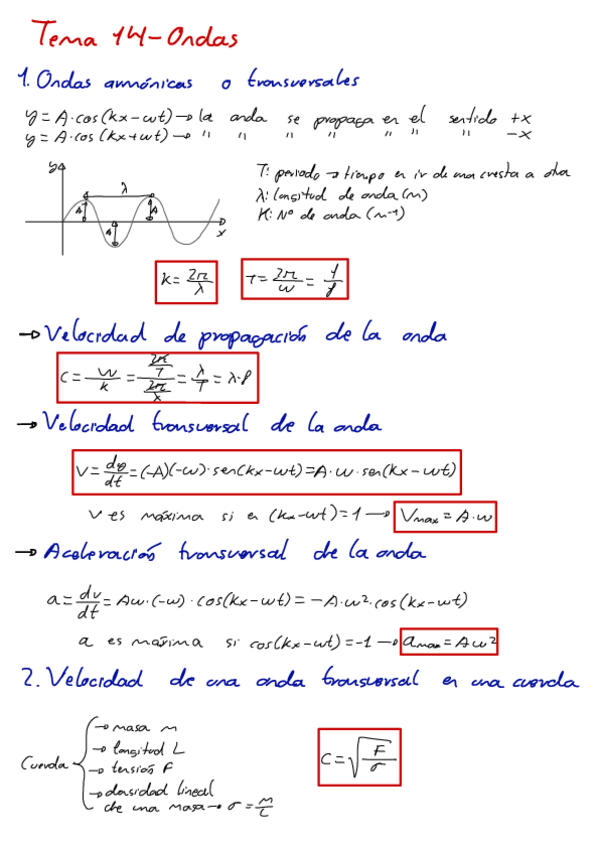 Tema 14-Ondas
1. Ondas armónicas o transversales
y = A·cos(kx-wt) → la onda se propaga en el sentido +x
y = A·cos(kx+wt) → " " " " " " " -x
y
λ
A
A
A
x
T: periodo → tiempo en ir de una cresta a otra
λ: longitud de onda (m)
K: Nº de onda (m⁻¹)
k = 2π/λ
T = 2π/w = 1/f
→ Velocidad de propagación de la onda
c = w/k = (2π/T)/(2π/λ) = λ/T = λ·f
→ Velocidad transversal de la onda
v = dy/dt = (-A)(-w)·sen(kx-wt) = A·w·sen(kx-wt)
v es máxima si en (kx-wt) = 1 → Vmax = A·w
→ Aceleración transversal de la onda
a = dv/dt = Aw·(-w)·cos(kx-wt) = -A·w²·cos(kx-wt)
a es máxima si cos(kx-wt) = -1 → amax = Aw²
2. Velocidad de una onda transversal en una cuerda
Cuerda
→ masa m
→ longitud L
→ tensión F
→ densidad lineal
de una masa → σ = m/L
c = √(F/σ)